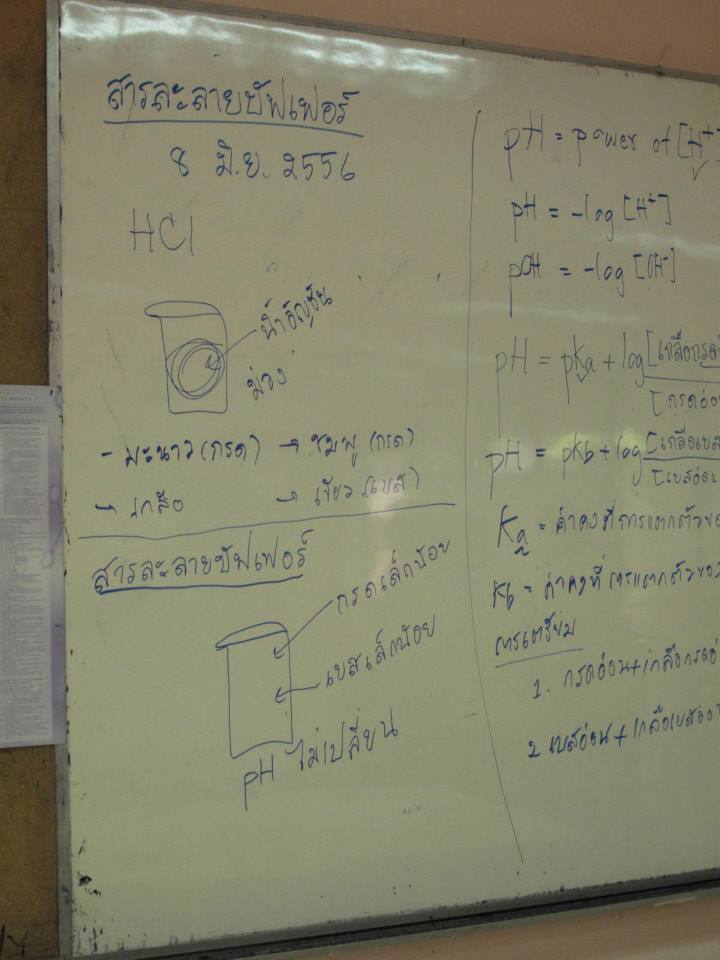 สารละลายบัฟเฟอร์
8 มิ.ย. 2556
HCl
น้ำอัญชัน
ม่วง
- มะนาว (กรด) → ชมพู (กรด)
→ เกลือ → เขียว (เบส)
สารละลายบัฟเฟอร์
กรดเล็กน้อย
เบสเล็กน้อย
pH ไม่เปลี่ยน
pH = power of [H+
pH = -log [H+]
pOH = -log [OH-]
pH = pKa + log [เกลือกรด
[กรดอ่อน
pH = pKb + log [เกลือเบส
[เบสอ่อน
Ka = ค่าคงที่การแตกตัวของ
Kb = ค่าคงที่การแตกตัวของ
การเตรียม
1. กรดอ่อน + เกลือกรดอ่
2 เบสอ่อน + เกลือเบสอ่อ